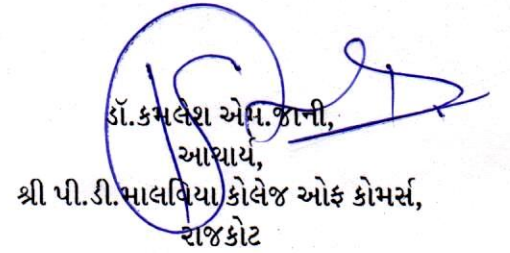 ડૉ.કમલેશ એમ.જાની,
આચાર્ય,
શ્રી પી.ડી.માલવિયા કોલેજ ઓફ કોમર્સ,
રાજકોટ